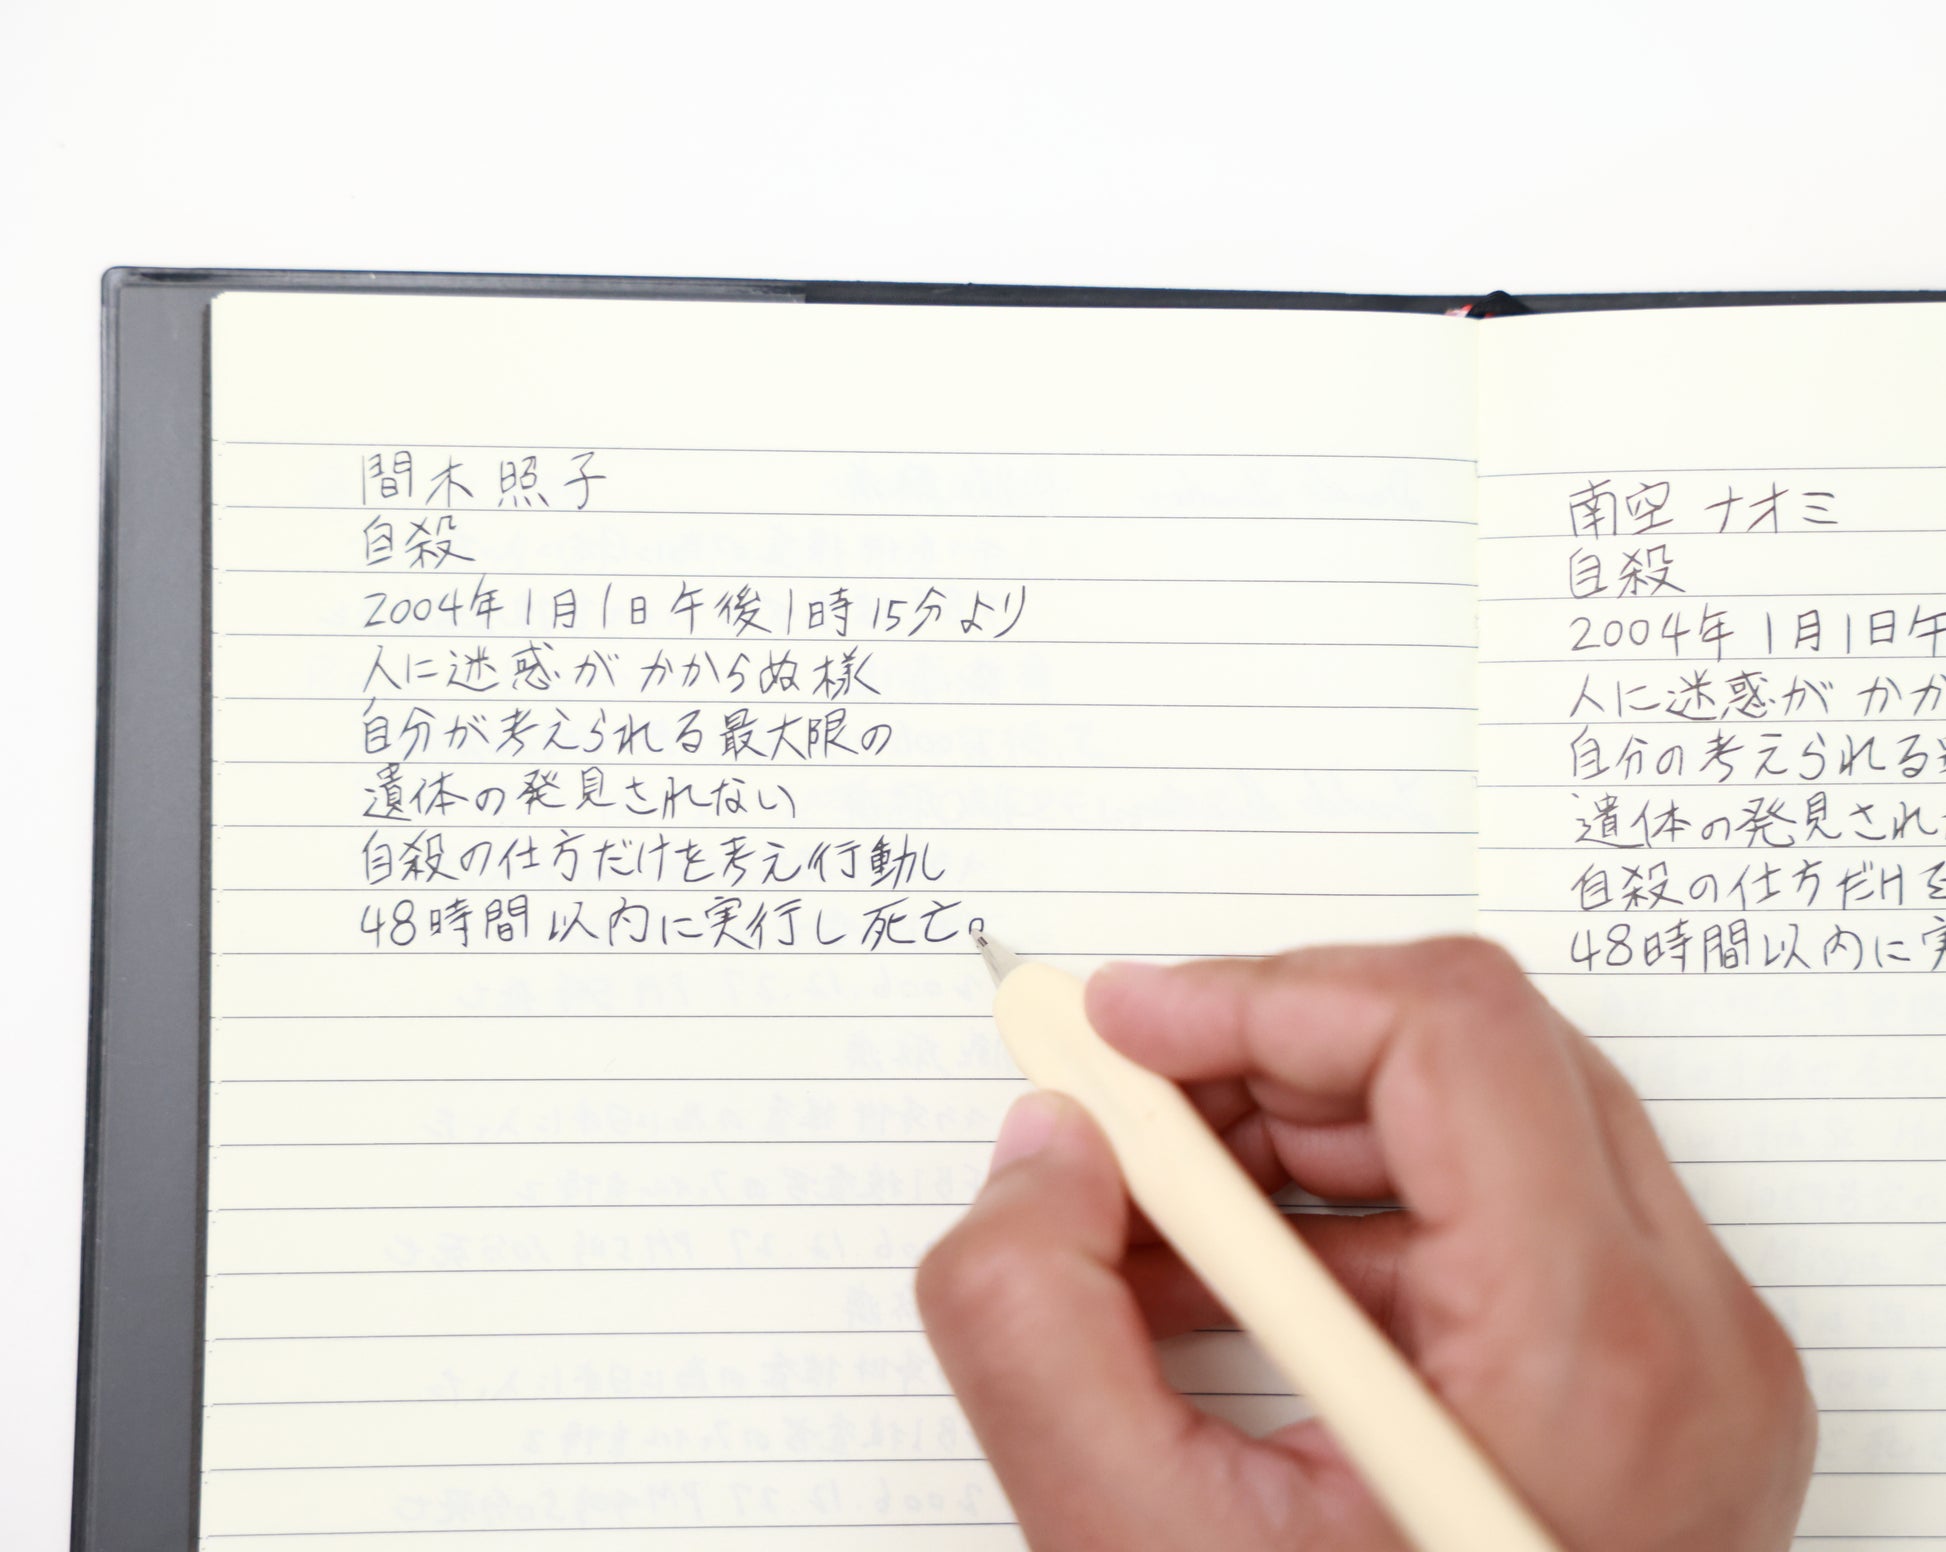 間木 照子
自殺
2004年1月1日午後1時15分より
人に迷惑がかからぬ様
自分が考えられる最大限の
遺体の発見されない
自殺の仕方だけを考え行動し
48時間以内に実行し死亡。
南空 ナオミ
自殺
2004年1月1日午
人に迷惑がかか
自分の考えられる
遺体の発見され
自殺の仕方だけを
48時間以内に実